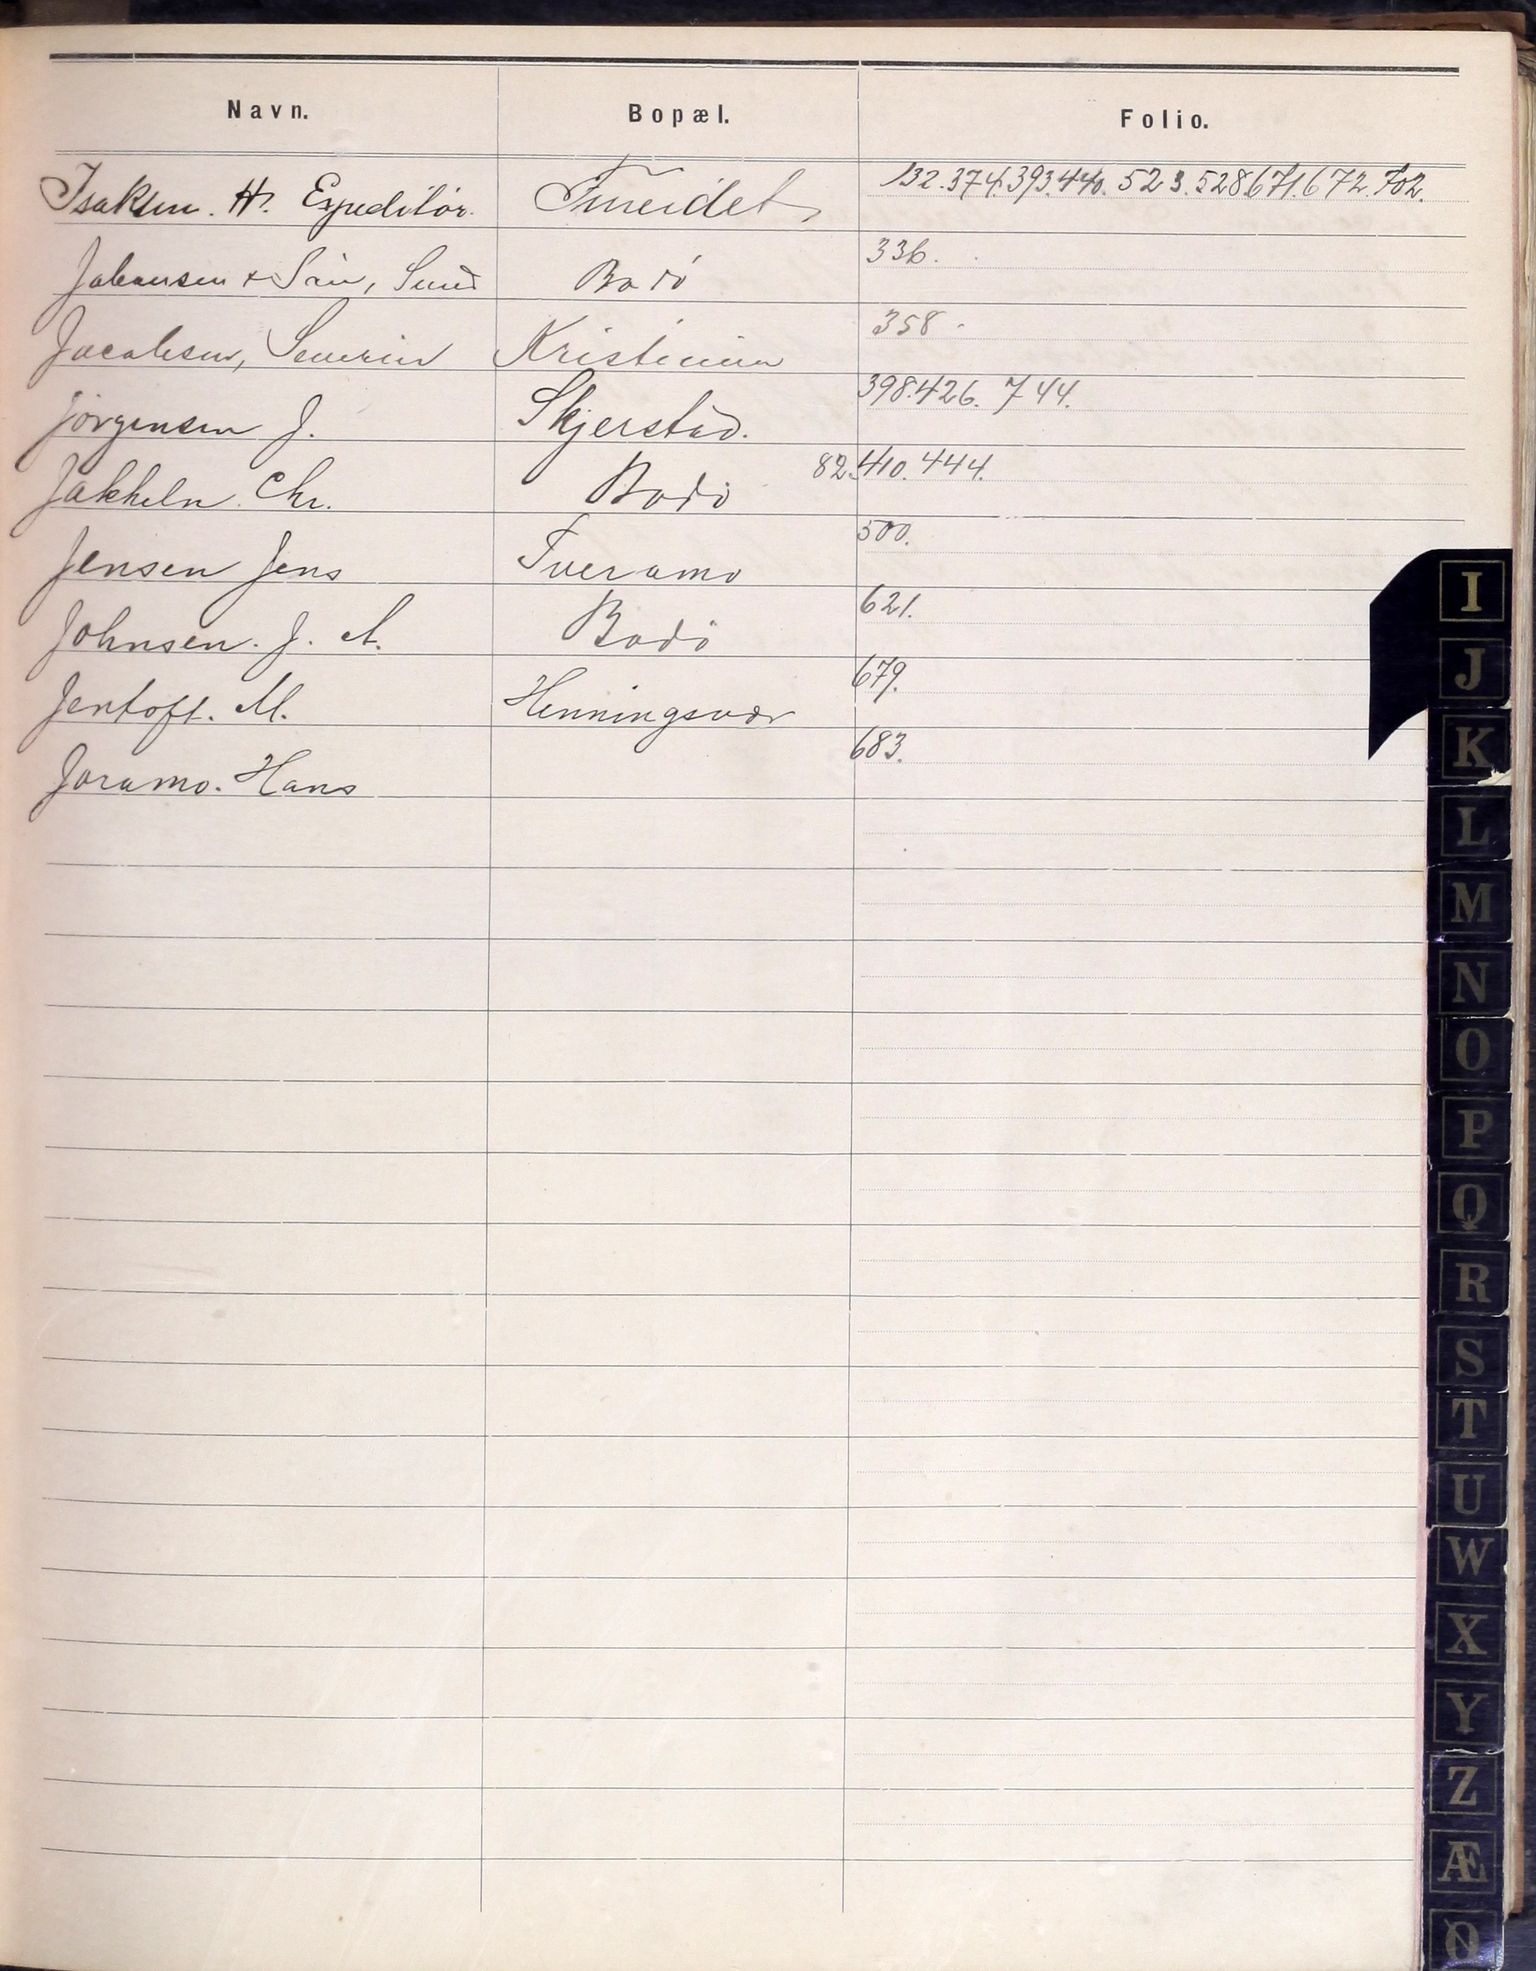 Navn. Bopæl. Folio.
Isaksen. H. Expeditör. Fineidet 132. 374. 393. 440. 523. 528 671. 672. 702.
Johansen & Sön, Bodö 336.
Jacobsen, Severin Kristiania 358.
Jörgensen J. Skjerstad. 398. 426. 744.
Jakheln. Chr. Bodö 82. 410. 444.
Jensen Jens Tveramo 500.
Johnsen. J. A. Bodö 621.
Jentoft. M. Henningsvær 679.
Joramo. Hans 683.
I
J
K
L
M
N
O
P
Q
R
S
T
U
W
X
Y
Z
Æ
Ø